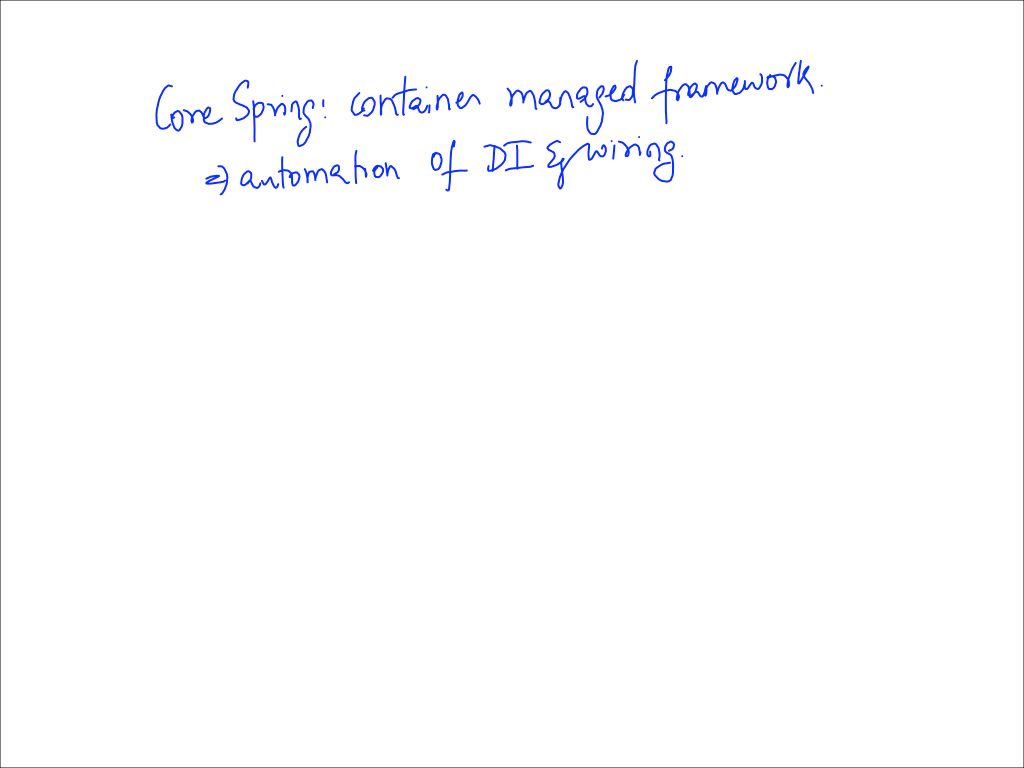 Core Spring: container managed framework.
⇒ automation of DI & wiring.